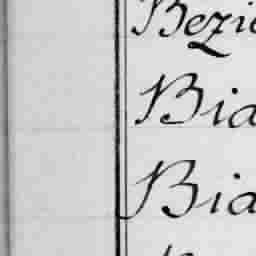 Bezie
Bia
Bia